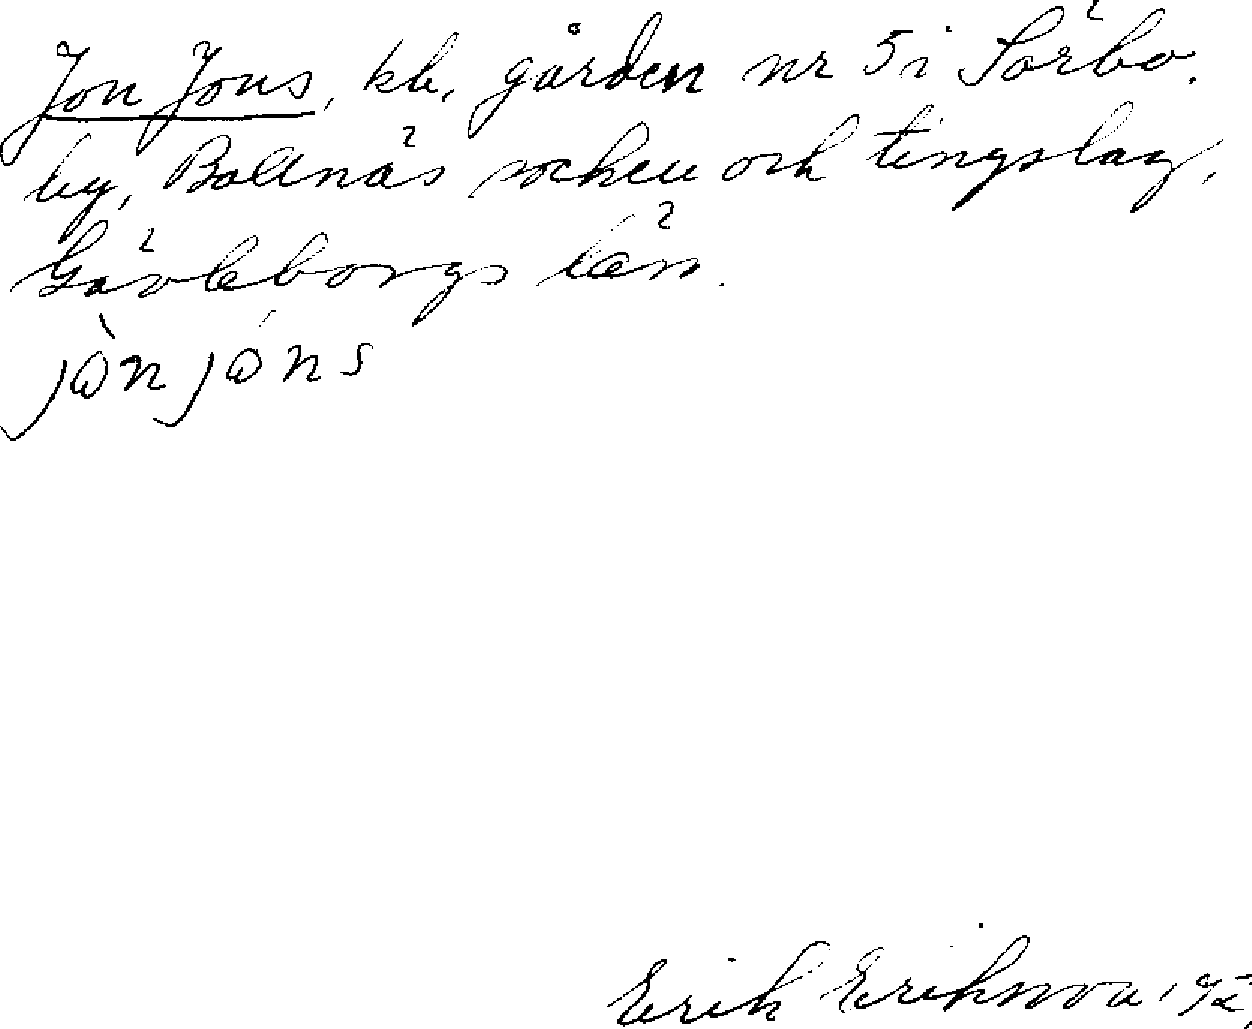 Jon Jons, kb, gården nr 5 i Sörbo
by, Bollnäs socken och tingslag,
Gävleborgs län.
jòn jóns
Erik Eriksson